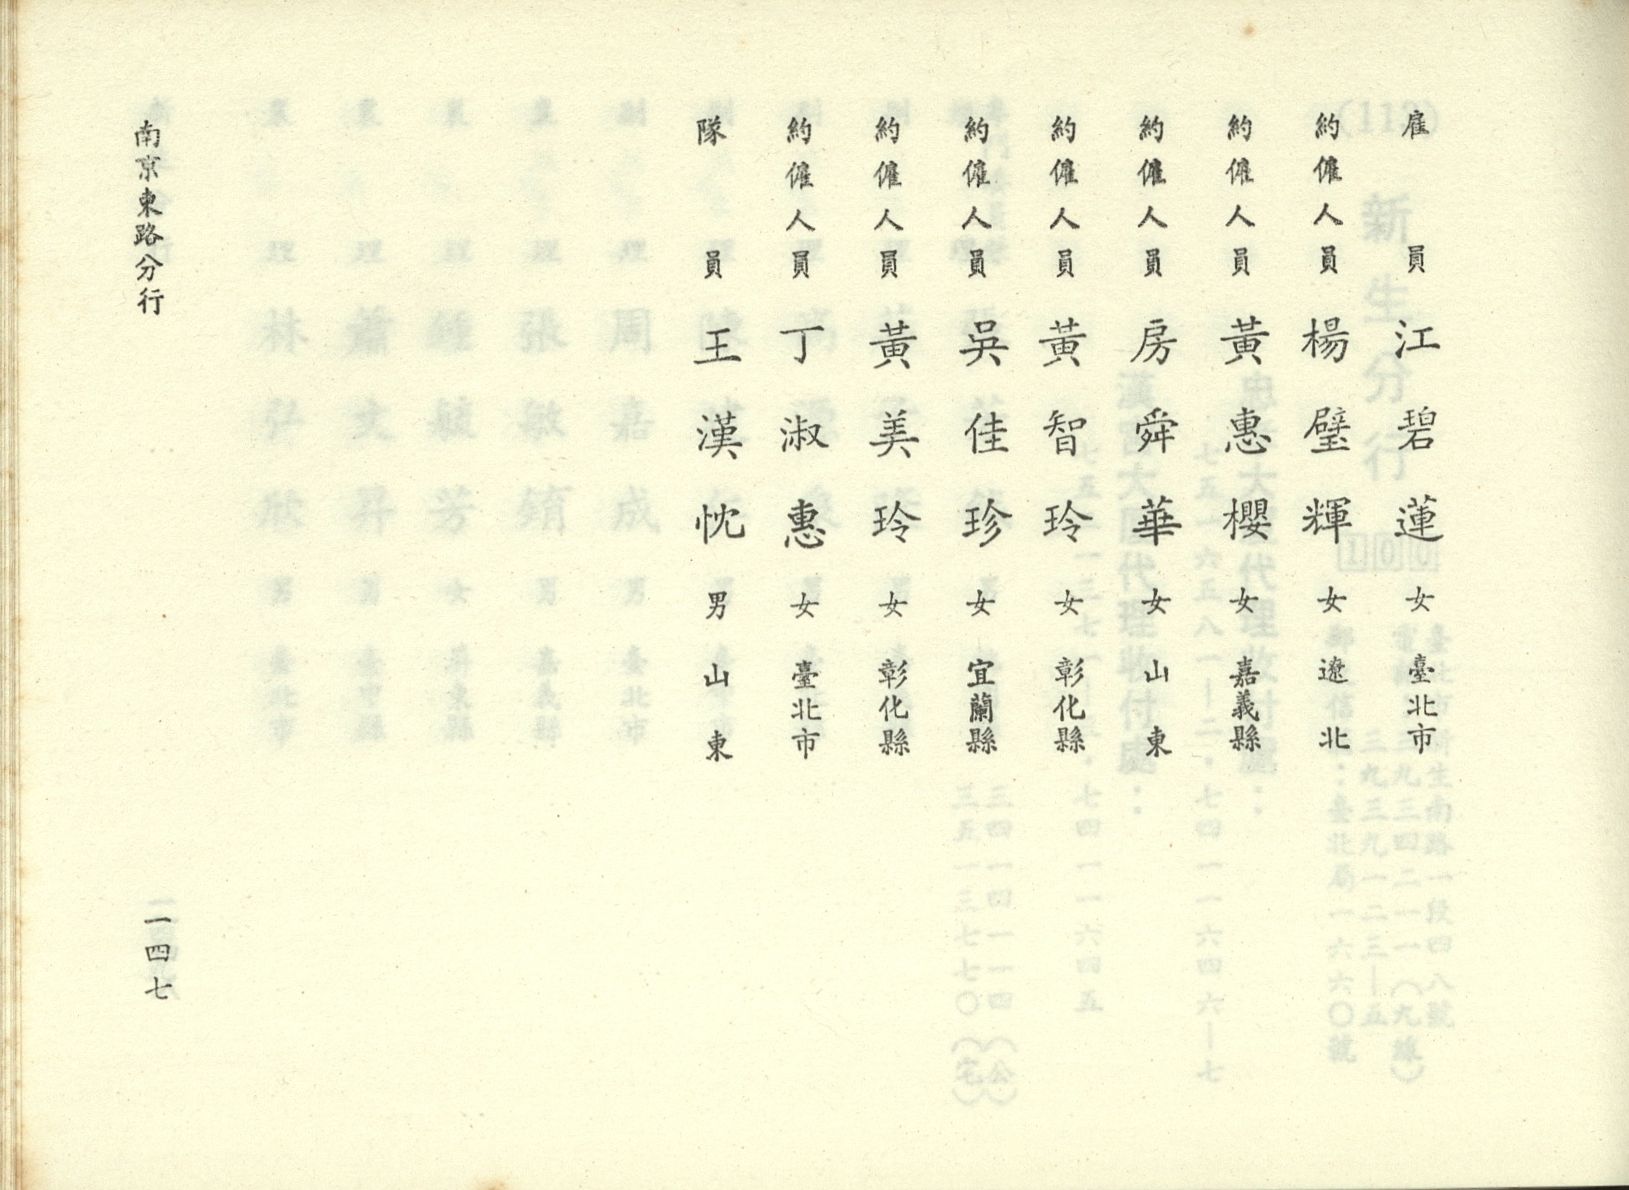 雇員 江碧蓮 女 臺北市
約僱人員 楊璧輝 女 遼北
約僱人員 黃惠櫻 女 嘉義縣
約僱人員 房舜華 女 山東
約僱人員 黃智玲 女 彰化縣
約僱人員 吳佳珍 女 宜蘭縣
約僱人員 黃美玲 女 彰化縣
約僱人員 丁淑惠 女 臺北市
隊員 王漢忱 男 山東
南京東路分行
一四七